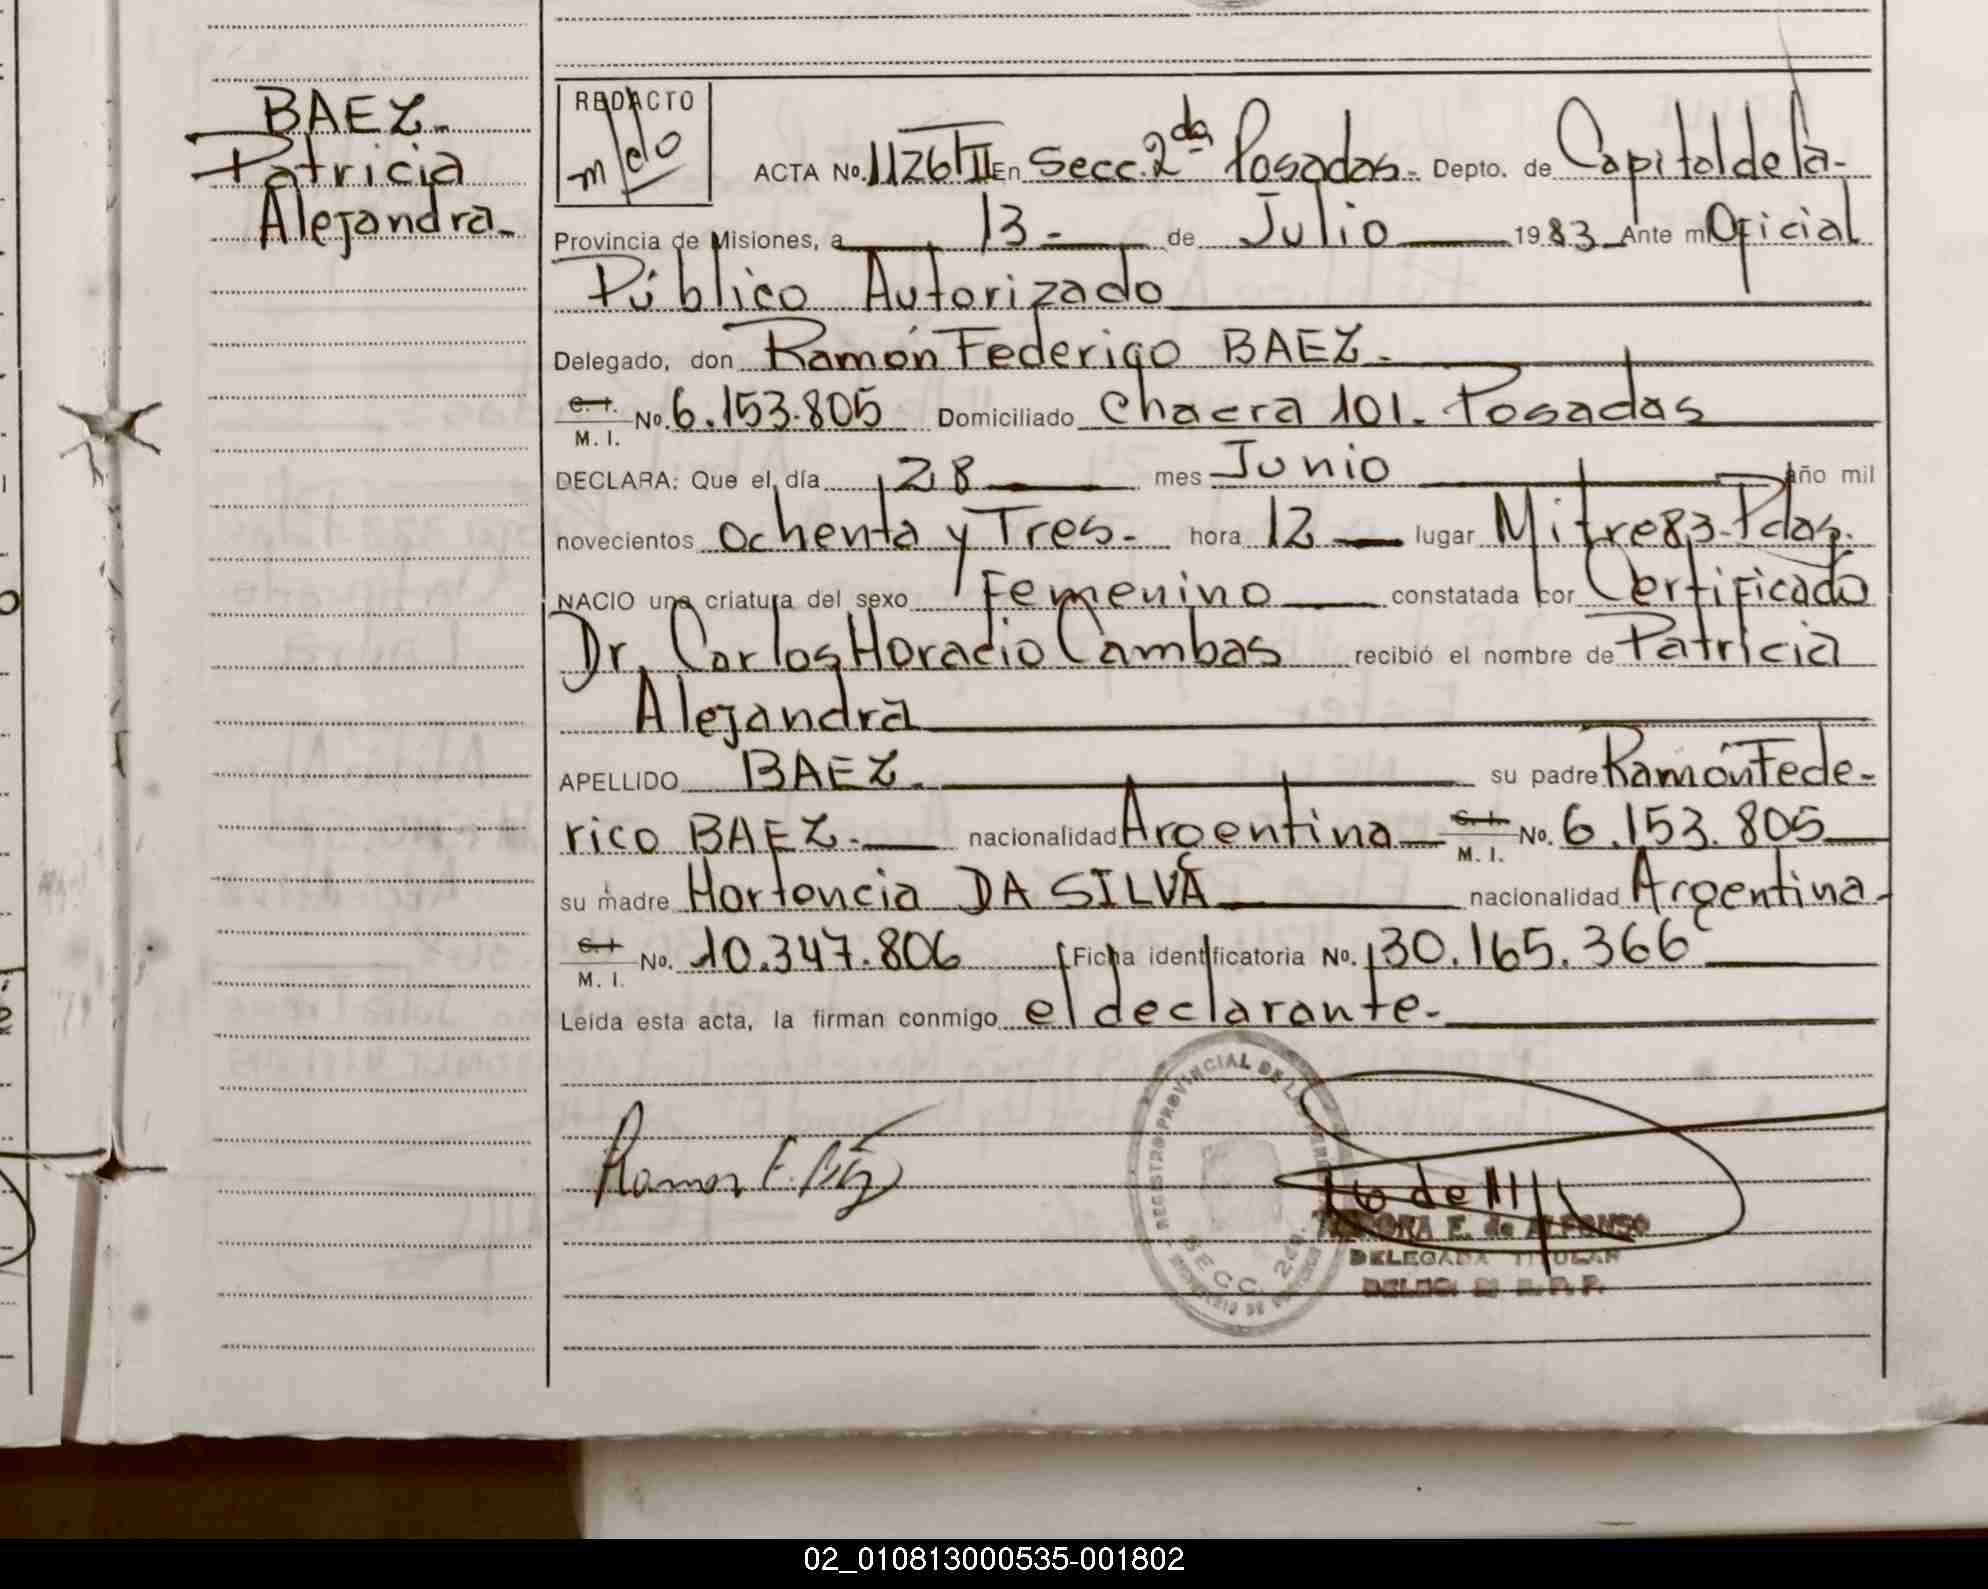 BAEZ.
Patricia
Alejandra.
REDACTO
ACTA No. 1126/TII En Secc. 2da Posadas. Depto. de Capital de la
Provincia de Misiones, a 13- de Julio 1983 Ante mi Oficial
Público Autorizado
Delegado, don Ramón Federico BAEZ.
C. I.
M. I. No. 6.153.805 Domiciliado Chacra 101. Posadas
DECLARA: Que el día 28 mes Junio año mil
novecientos ochenta y Tres. hora 12 lugar Mitre 83. Pdas.
NACIO una criatura del sexo Femenino constatada por Certificado
Dr. Carlos Horacio Cambas recibió el nombre de Patricia
Alejandra
APELLIDO BAEZ. su padre Ramón Fede-
rico BAEZ. nacionalidad Argentina C. I. M. I. No. 6.153.805
su madre Hortencia DA SILVA nacionalidad Argentina-
C. I.
M. I. No. 10.347.806 Ficha identificatoria No. 30.165.366
Leída esta acta, la firman conmigo el declarante.-
Ramon F. Báez
REGISTRO PROVINCIAL DE LAS
SECC. 2da.
E. de ALFONSO
DELEGADA TITULAR
02_010813000535-001802